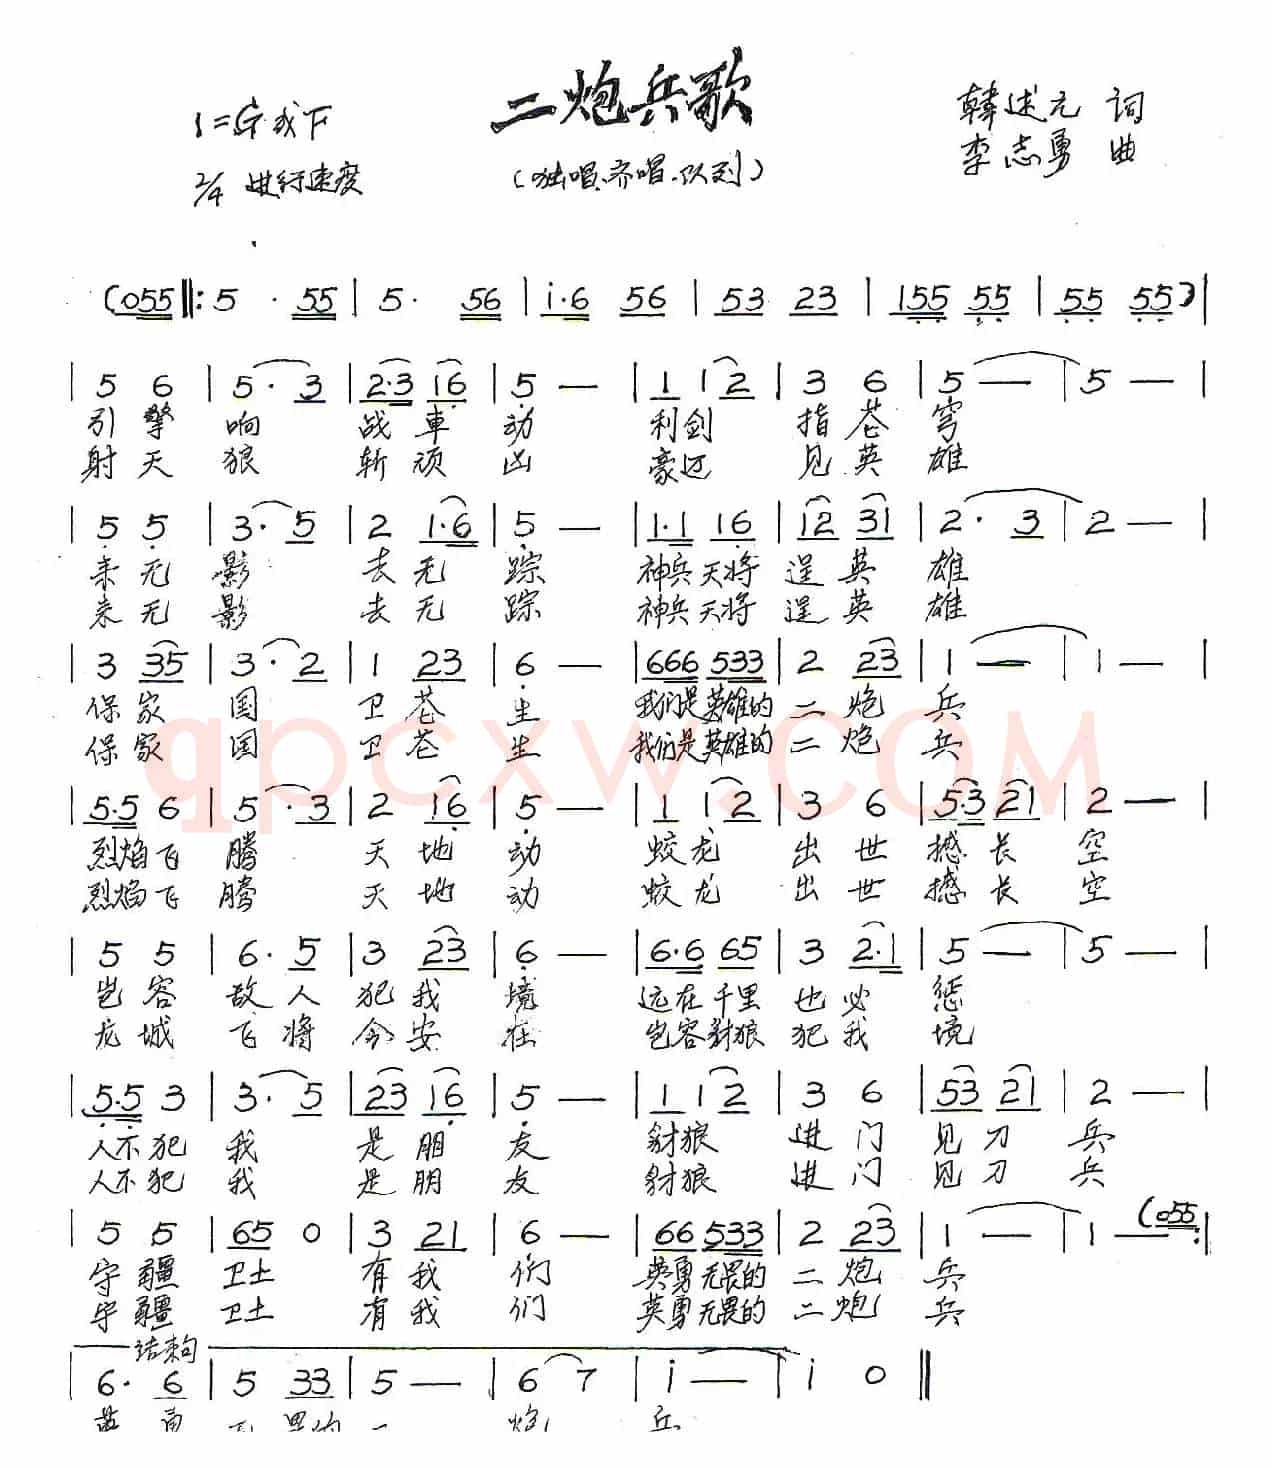 二炮兵歌
1=G或F
韩述元 词
2/4 进行速度
(独唱、齐唱、队列)
李志勇 曲
(055 ‖: 5 · 55 | 5 · 56 | i·6 56 | 53 23 | 155 55 | 55 55) |
| 5 6 | 5 · 3 | 2·3 16 | 5 — | 1 1 2 | 3 6 | 5 — | 5 — |
引擎 响 战車 动 利剑 指苍 穹
射天 狼 斩顽 凶 豪迈 见英 雄
| 5 5 | 3 · 5 | 2 1·6 | 5 — | 1·1 16 | 12 31 | 2 · 3 | 2 — |
来无 影 去无 踪 神兵天将 逞英 雄
来无 影 去无 踪 神兵天将 逞英 雄
| 3 35 | 3 · 2 | 1 23 | 6 — | 666 533 | 2 23 | 1 — | 1 — |
保家 国 卫苍 生 我们是英雄的 二炮 兵
保家 国 卫苍 生 我们是英雄的 二炮 兵
qpcxw.COM
| 5·5 6 | 5 · 3 | 2 16 | 5 — | 1 1 2 | 3 6 | 5·3 21 | 2 — |
烈焰飞 腾 天地 动 蛟龙 出世 撼长 空
烈焰飞 腾 天地 动 蛟龙 出世 撼长 空
| 5 5 | 6 · 5 | 3 23 | 6 — | 6·6 65 | 3 2·1 | 5 — | 5 — |
岂容 敌人 犯我 境 远在千里 也必 惩
龙城 飞将 今安 在 岂容豺狼 犯我 境
| 5·5 3 | 3 · 5 | 23 16 | 5 — | 1 1 2 | 3 6 | 53 21 | 2 — |
人不犯 我 是朋 友 豺狼 进门 见刀 兵
人不犯 我 是朋 友 豺狼 进门 见刀 兵
| 5 5 | 65 0 | 3 21 | 6 — | 66 533 | 2 23 | 1 — | 1 (055 :‖
守疆 卫土 有我 们 英勇无畏的 二炮 兵
守疆 卫土 有我 们 英勇无畏的 二炮 兵
结束句
| 6 · 6 | 5 33 | 5 — | 6 7 | i — | i 0 ‖
炮 兵